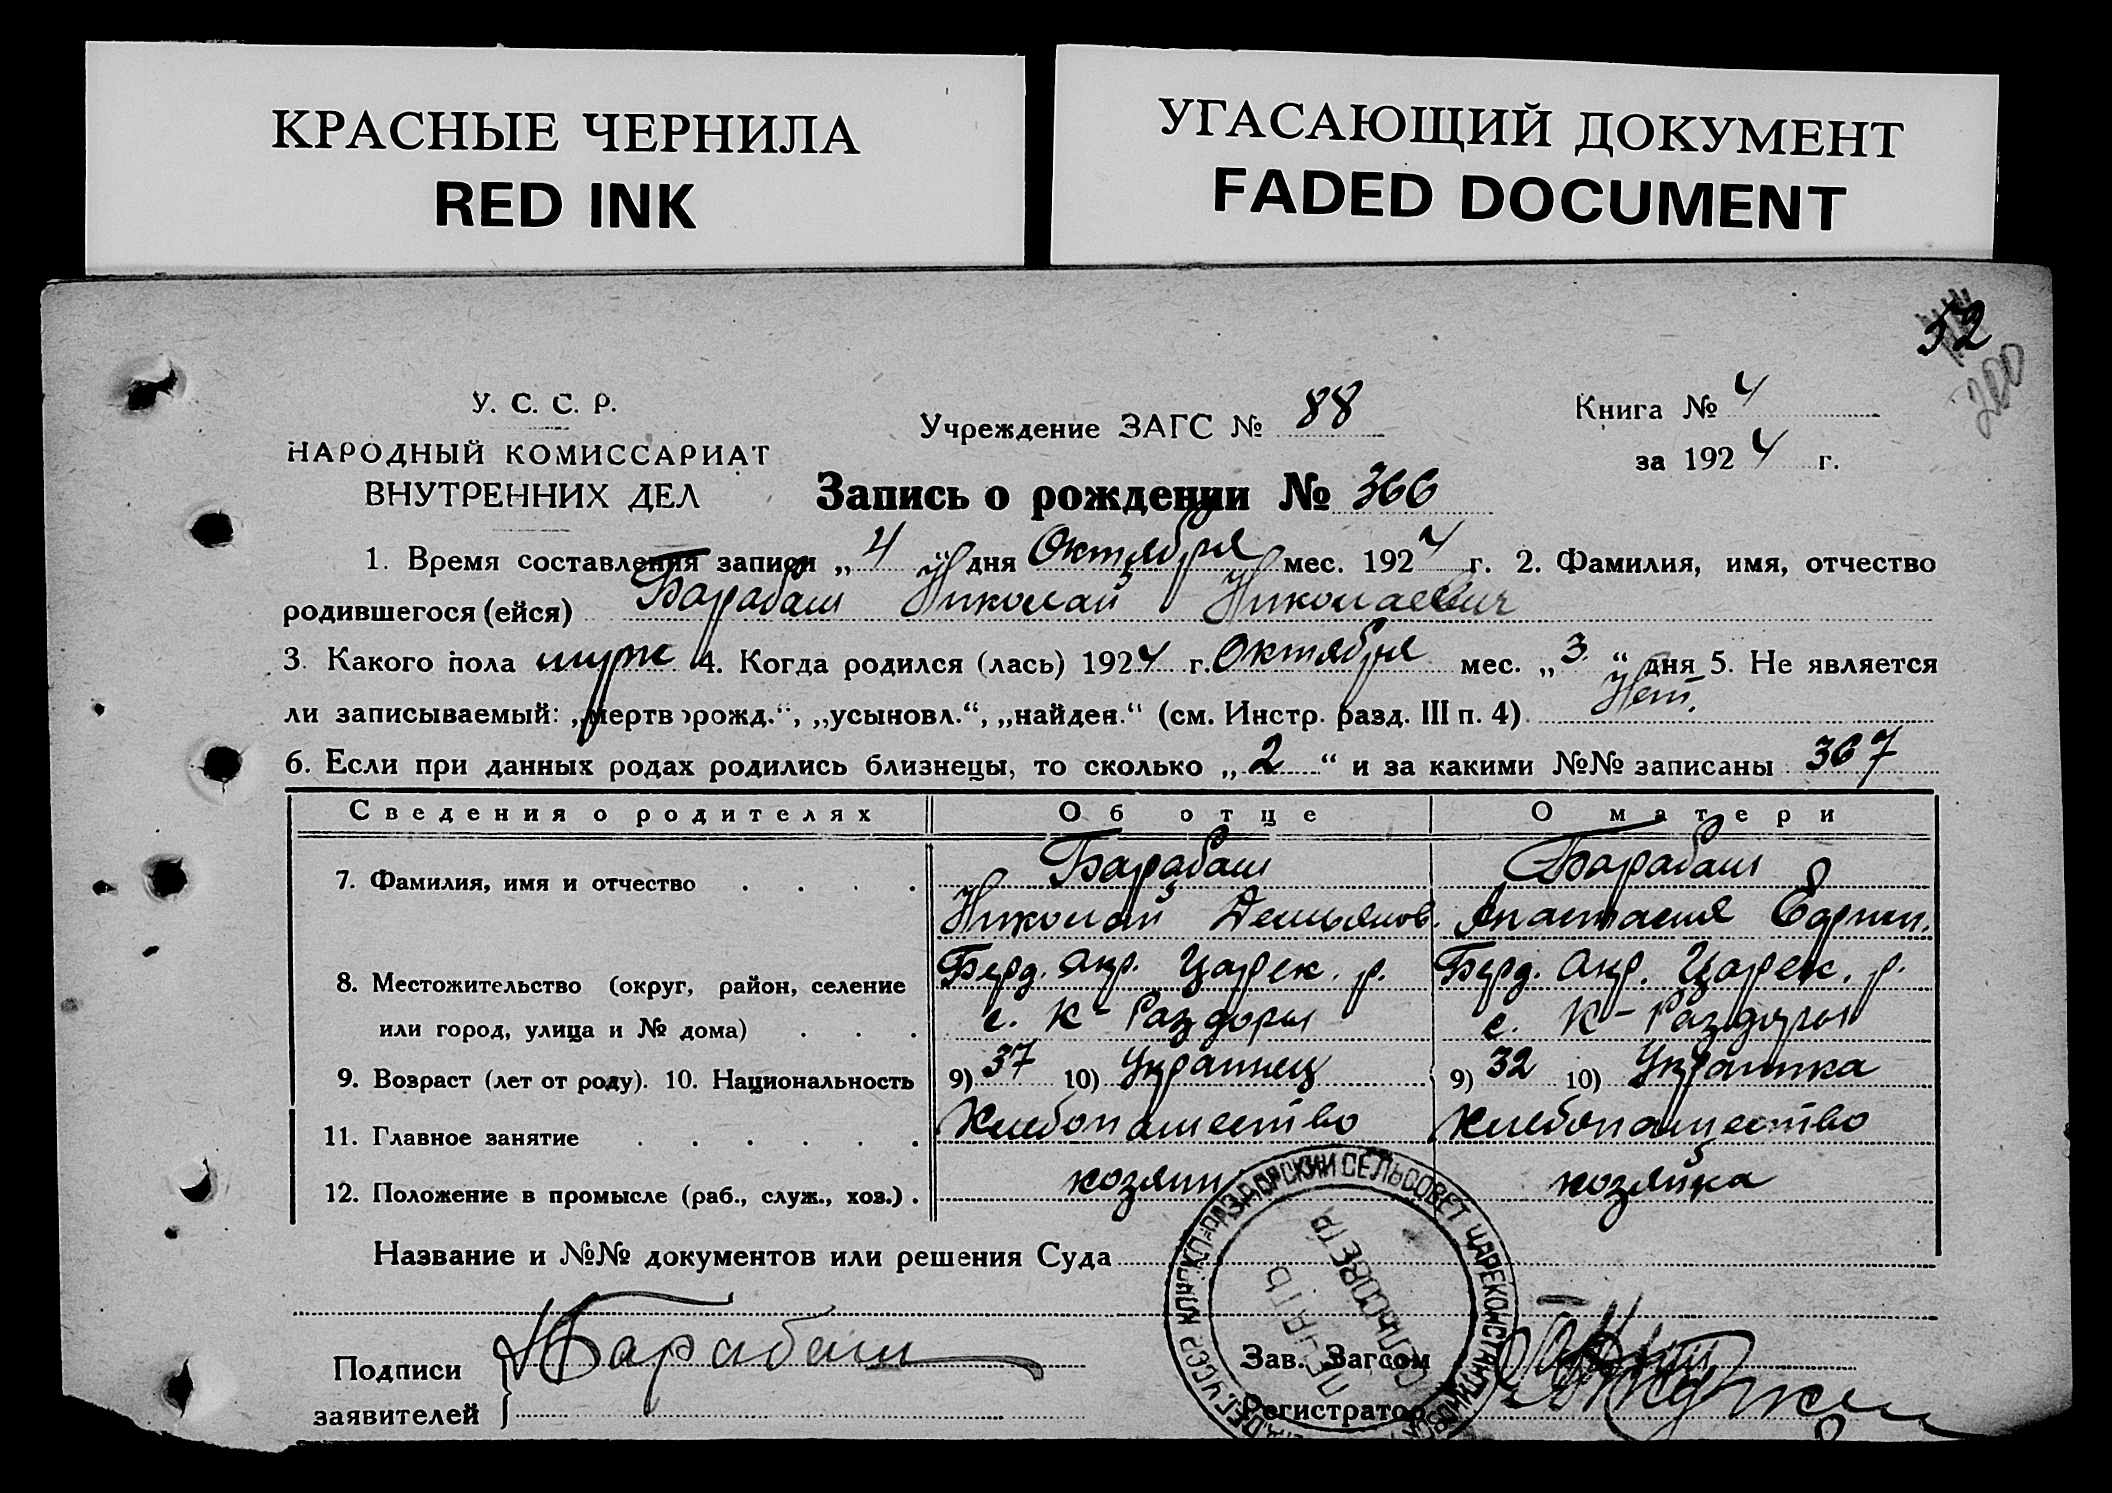 КРАСНЫЕ ЧЕРНИЛА
RED INK
УГАСАЮЩИЙ ДОКУМЕНТ
FADED DOCUMENT
52
200
У. С. С. Р.
НАРОДНЫЙ КОМИССАРИАТ
ВНУТРЕННИХ ДЕЛ
Учреждение ЗАГС № 88
Книга № 4
за 1924 г.
Запись о рождении № 366
1. Время составления записи „4“ дня Октября мес. 1924 г. 2. Фамилия, имя, отчество
родившегося (ейся) Барабаш Николай Николаевич
3. Какого пола муж 4. Когда родился (лась) 1924 г. Октября мес. „3“ дня 5. Не является
ли записываемый: „мертворожд.“, „усыновл.“, „найден.“ (см. Инстр. разд. III п. 4) Нет.
6. Если при данных родах родились близнецы, то сколько „2“ и за какими №№ записаны 367
Сведения о родителях Об отце О матери
7. Фамилия, имя и отчество . . . . Барабаш Барабаш
Николай Демьянов. Анастасия
8. Местожительство (округ, район, селение Берд. окр. Царек. р. Берд. окр. Царек. р.
или город, улица и № дома) . . . с. К-Раздоры с. К-Раздоры
9. Возраст (лет от роду). 10. Национальность 9) 37 10) Украинец 9) 32 10) Украинка
11. Главное занятие . . . . . . Хлебопашество Хлебопашество
12. Положение в промысле (раб., служ., хоз.) . хозяин хозяйка
Название и №№ документов или решения Суда
КОНСКО-РАЗДОРСКИЙ СЕЛЬСОВЕТ ЦАРЕКОНСТАНТИНОВСК
УССР
ПЕЧАТЬ
СЕЛЬСОВЕТА
Подписи
заявителей
Барабаш
Зав. Загсом
Регистратор